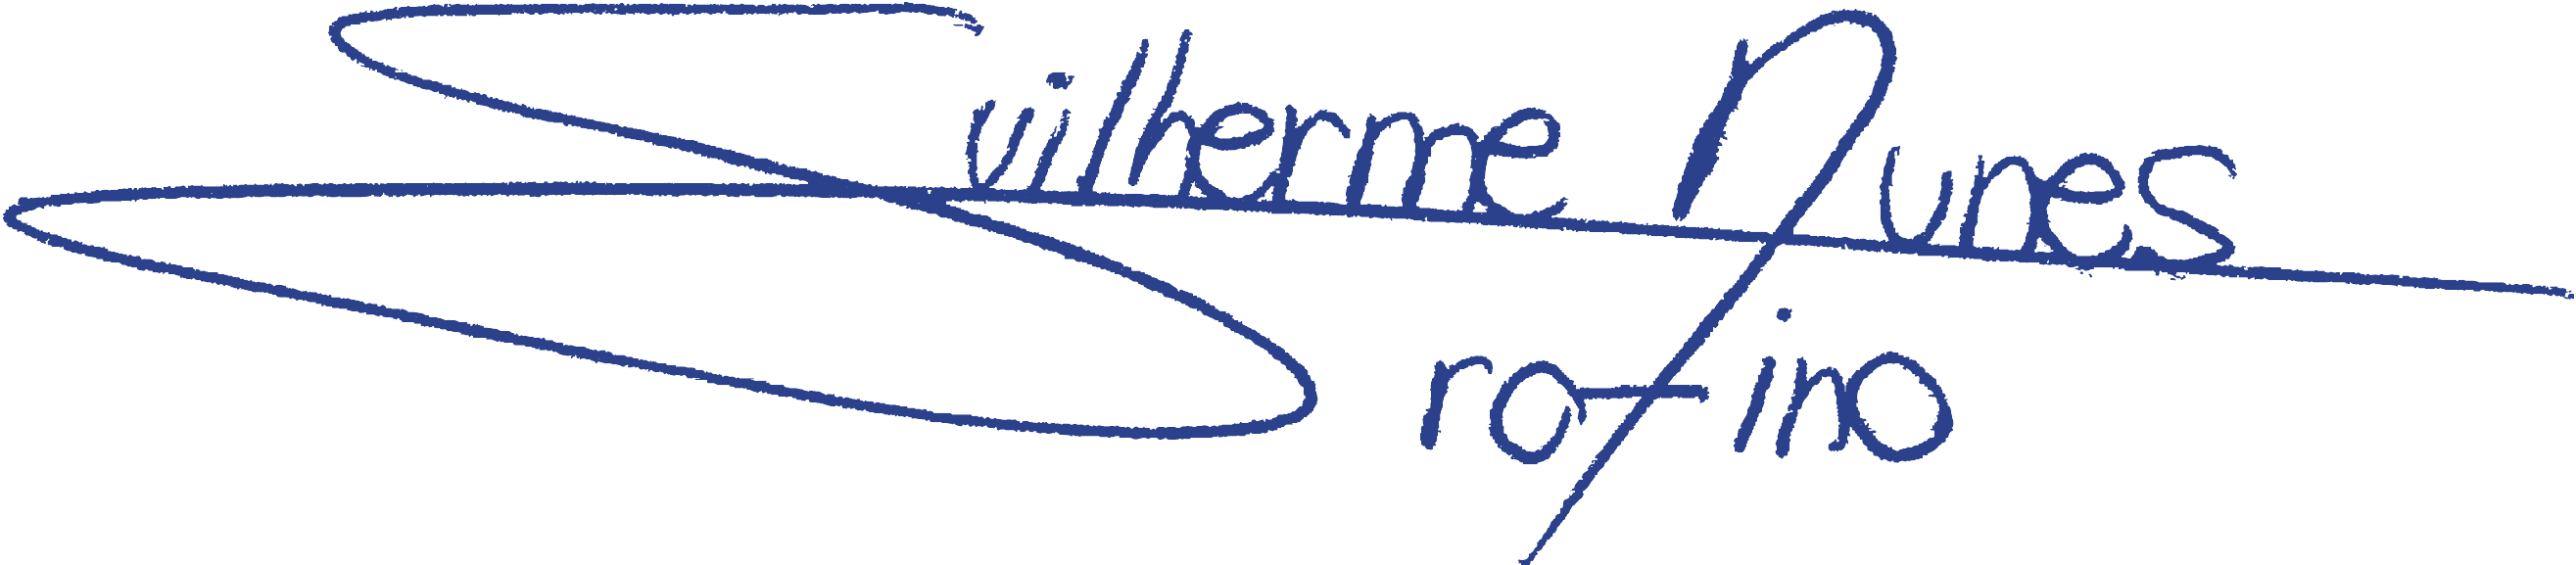 Guilherme Nunes
rofino